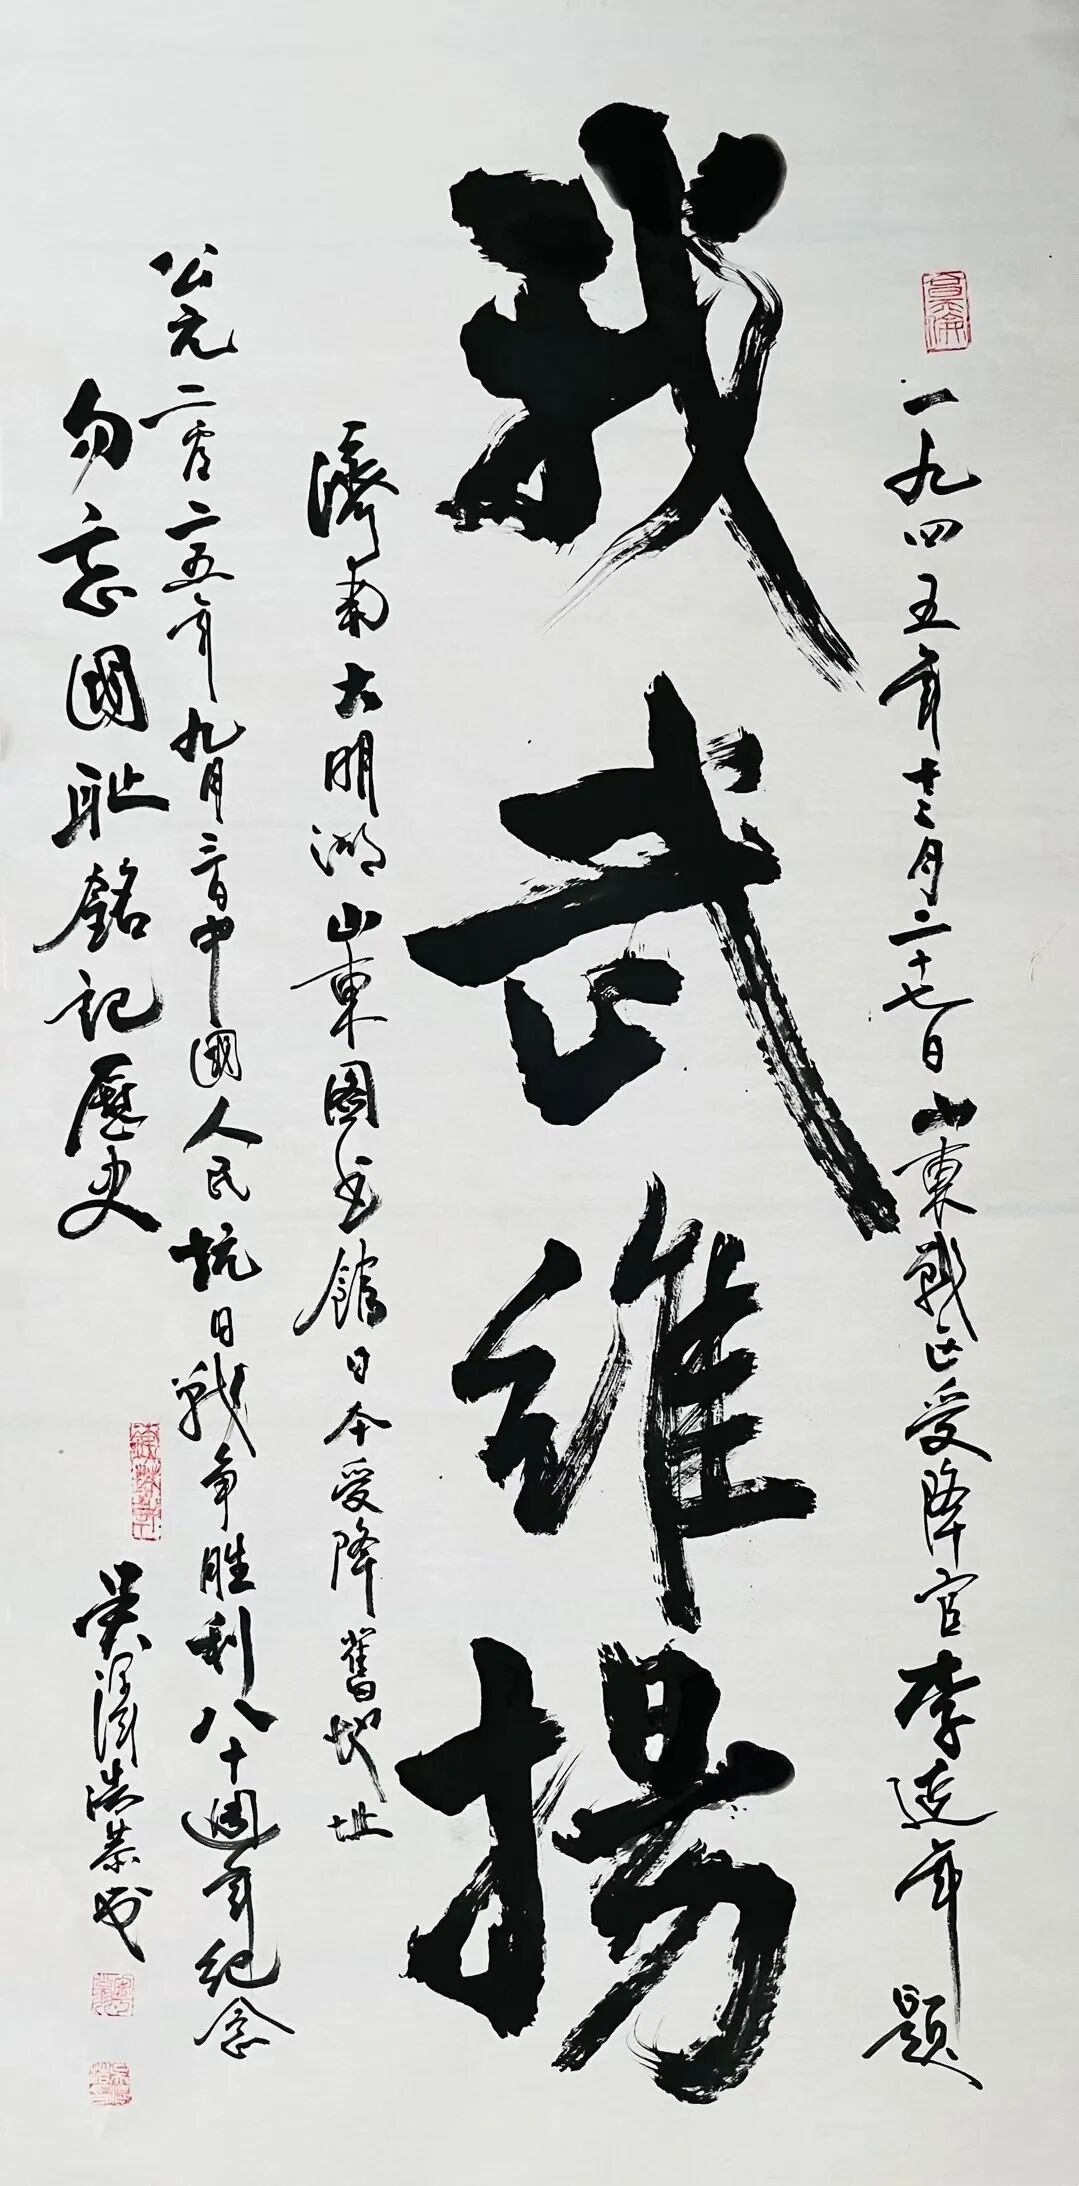 一九四五年十二月二十七日山東戰区受降官李延年题
我武维揚
濟南大明湖山東图书館日本受降舊地址
公元二零二五年九月三日中國人民抗日戰争胜利八十週年纪念
勿忘國耻銘記歷史
吴澤浩恭书